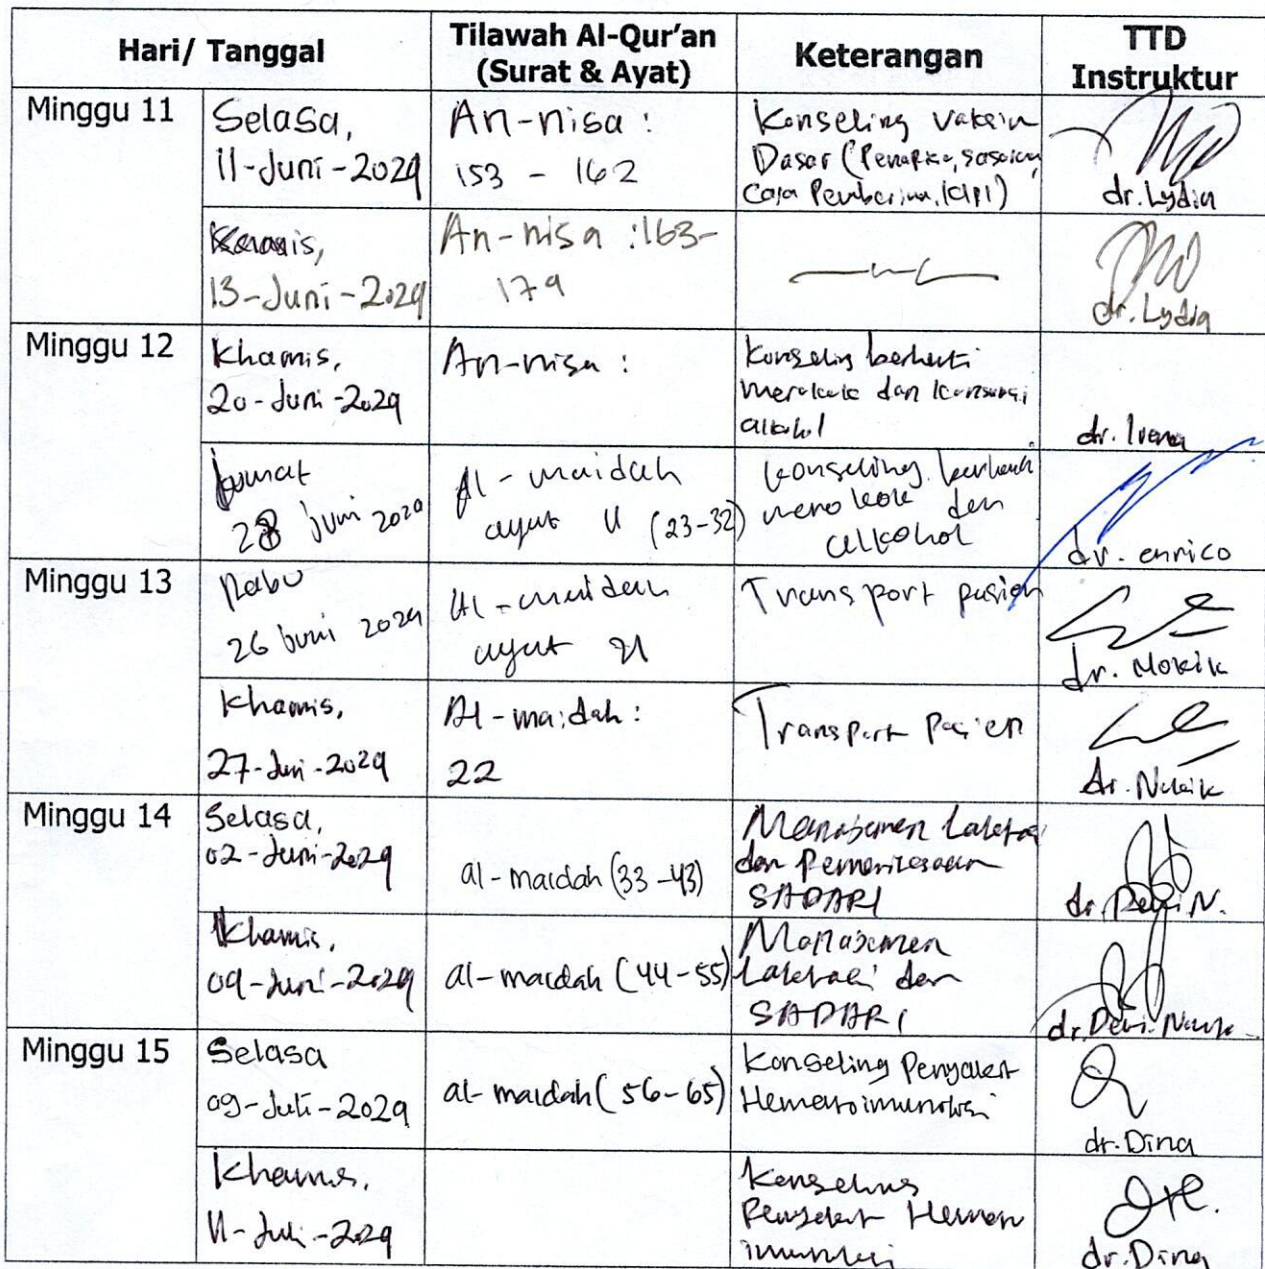 Hari/ Tanggal
Tilawah Al-Qur'an
(Surat & Ayat)
Keterangan
TTD
Instruktur
Minggu 11
Selasa,
11-Juni-2024
An-nisa :
153 - 162
Konseling vaksin
Dasar (
dr. Lydia
Kamis,
13-Juni-2024
An-nisa :163-
179
dr. Lydia
Minggu 12
Khamis,
20-Juni-2024
An-nisa :
Konseling berhenti
merokok dan konsumsi
alkohol
dr.
Jumat
juni 2024
Al-maidah
ayat (23-32)
Konseling berhenti
merokok dan
alkohol
dr. enrico
Minggu 13
Rabu
26 Juni 2024
Al-maidah
ayat 21
Transport pasien
dr.
Khamis,
27-Juni-2024
Al-maidah:
22
Transport Pasien
dr.
Minggu 14
Selasa,
02-Juni-2024
al-maidah (33-43)
Manajemen Laktasi
dan Pemeriksaan
SADARI
dr. Devi N.
Khamis,
04-Juni-2024
al-maidah (44-55)
Manajemen
Laktasi dan
SADARI
dr. Devi
Minggu 15
Selasa
09-Juli-2024
al-maidah (56-65)
Konseling Penyakit
Hematoimunologi
dr. Dina
Khamis,
11-Juli-2024
Konseling
Penyakit Hemato
imunologi
dr. Dina